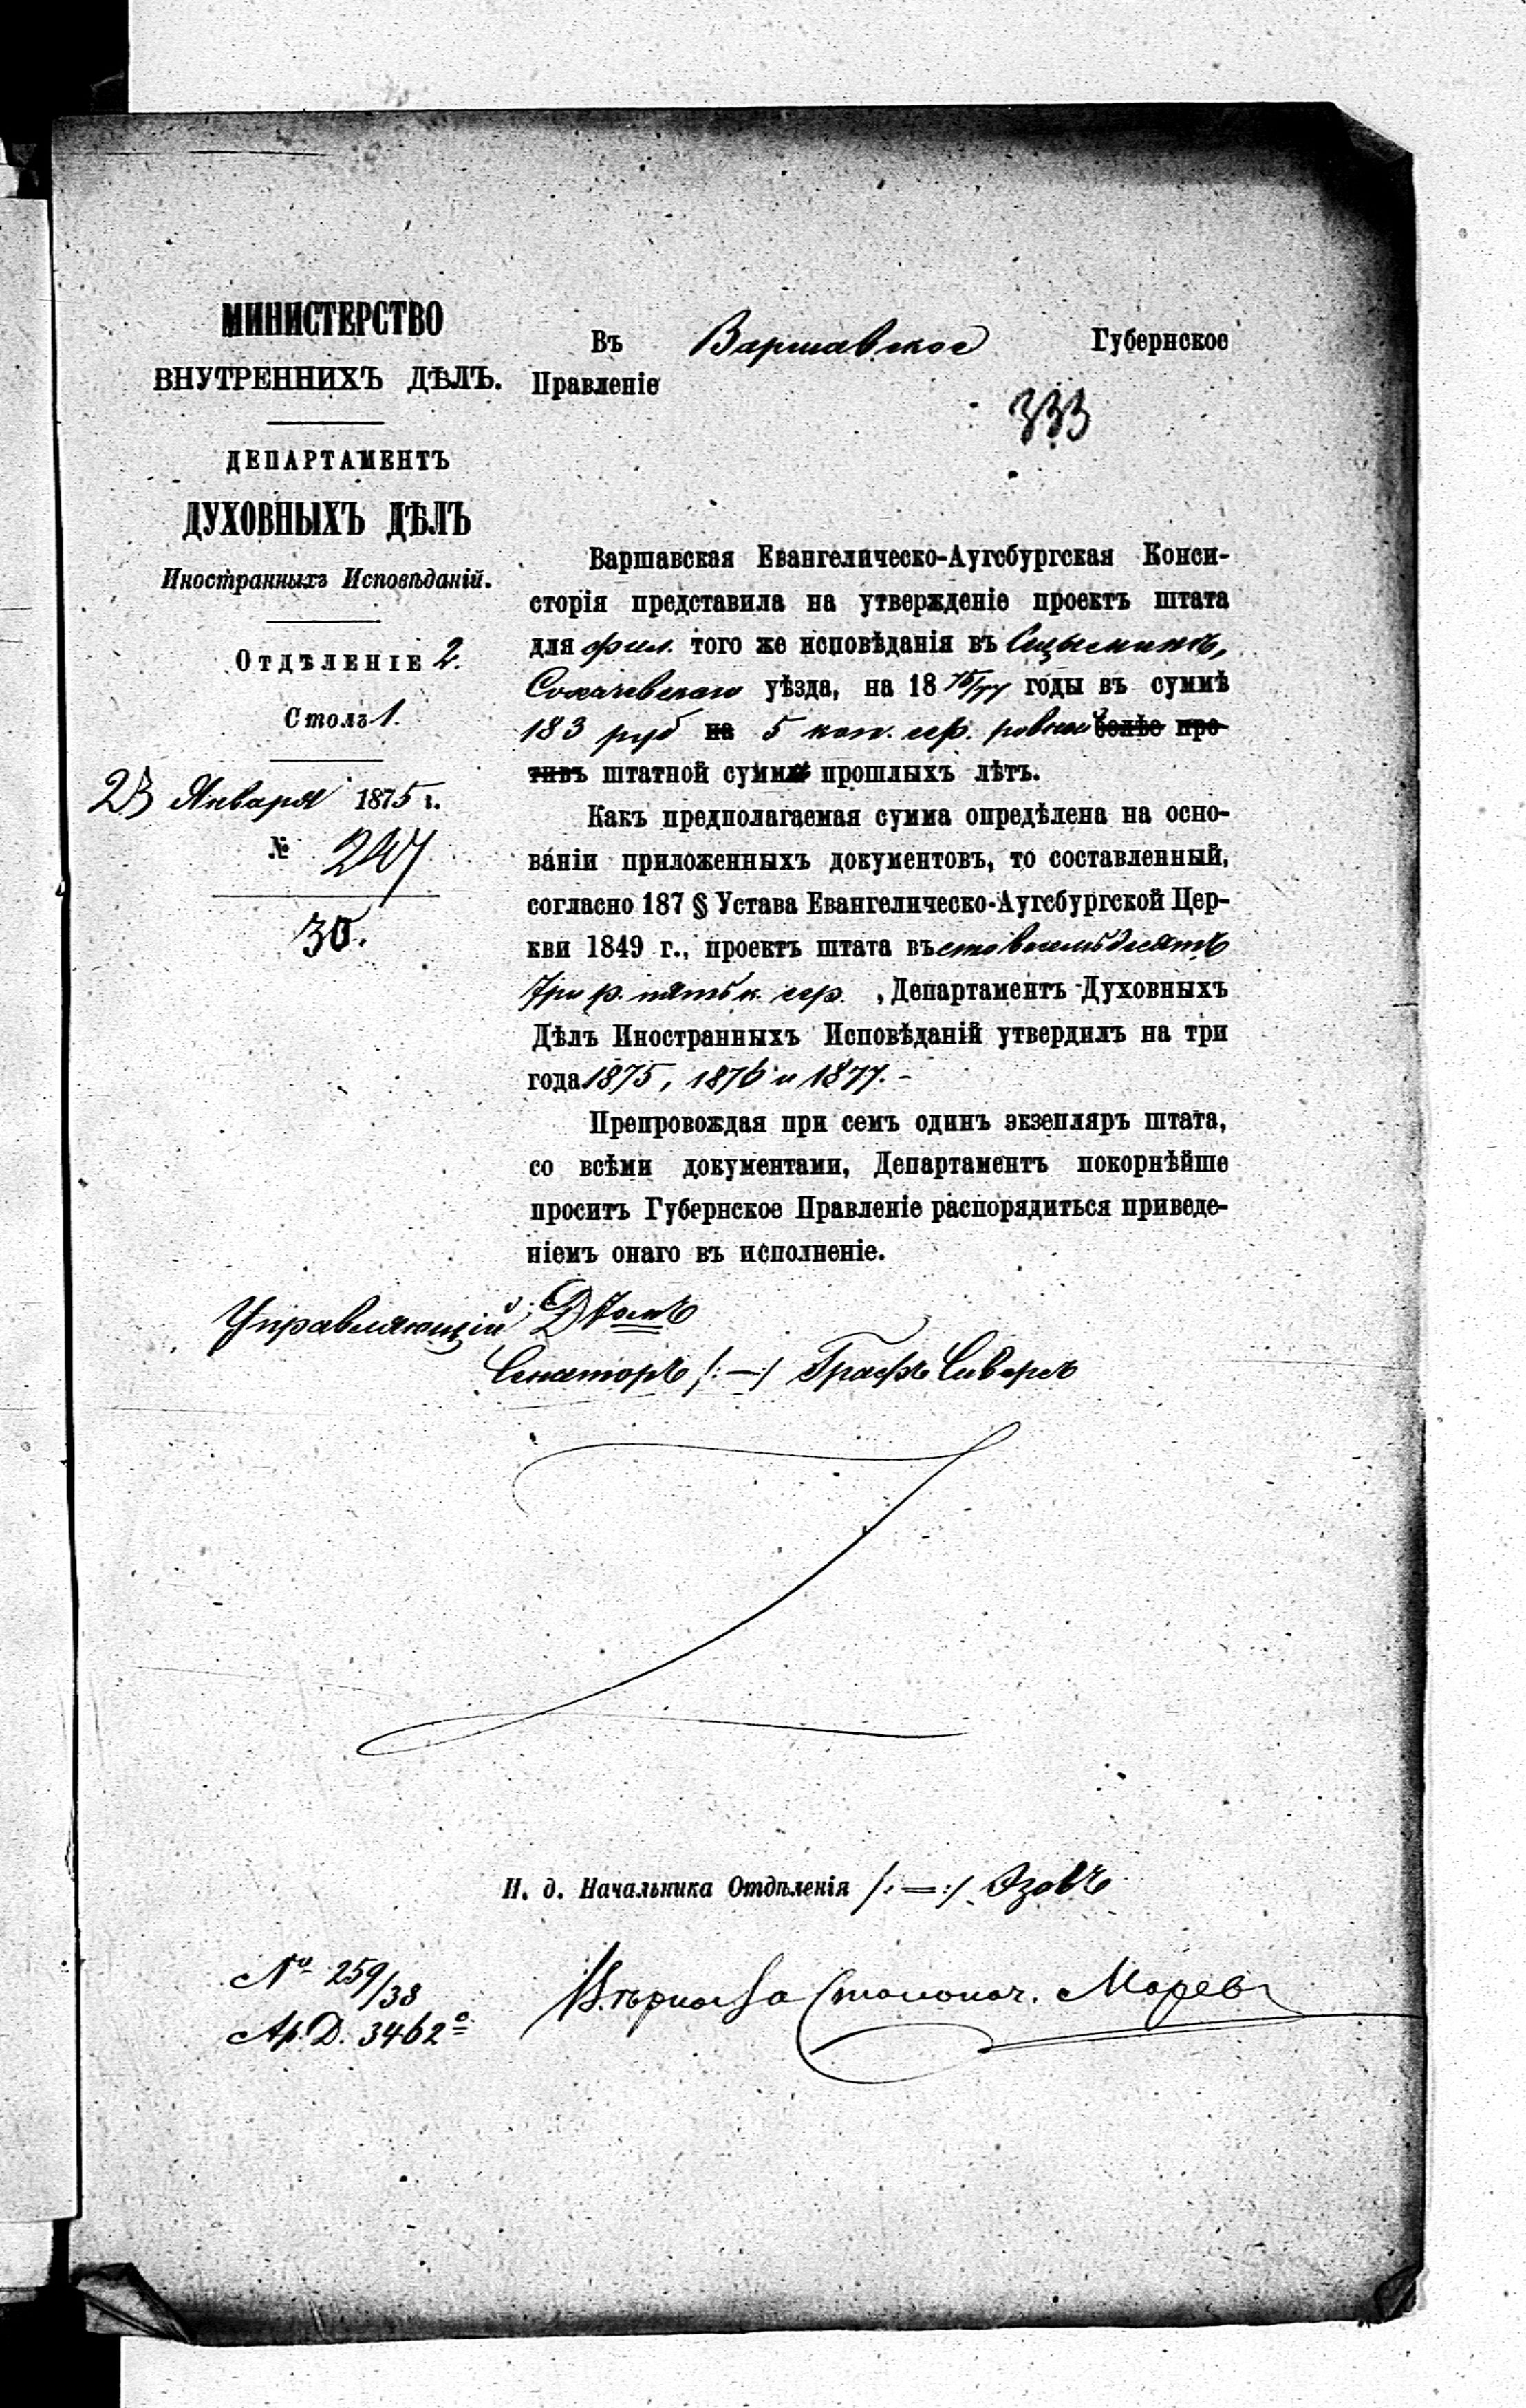 МИНИСТЕРСТВО
ВНУТРЕННИХЪ ДѢЛЪ.
ДЕПАРТАМЕНТЪ
ДУХОВНЫХЪ ДѢЛЪ
Иностранныхъ Исповѣданій.
ОТДѢЛЕНІЕ 2.
Столъ 1.
23 Января 1875 г.
№ 247
30.
Въ Варшавское Губернское
Правленіе
333
Варшавская Евангелическо-Аугсбургская Конси-
сторія представила на утвержденіе проектъ штата
для фил. того же исповѣданія въ Сцыминѣ,
Сохачевскаго уѣзда, на 18 75/77 годы въ суммѣ
183 руб на 5 коп. сер. ровной болѣе про-
тивъ штатной суммѣ прошлыхъ лѣтъ.
Какъ предполагаемая сумма опредѣлена на осно-
ваніи приложенныхъ документовъ, то составленный,
согласно 187 § Устава Евангелическо-Аугсбургской Цер-
кви 1849 г., проектъ штата въ сто восемьдесятъ
три р. пять к. сер. , Департаментъ Духовныхъ
Дѣлъ Иностранныхъ Исповѣданій утвердилъ на три
года 1875, 1876 и 1877. -
Препровождая при семъ одинъ экзепляръ штата,
со всѣми документами, Департаментъ покорнѣйше
проситъ Губернское Правленіе распорядиться приведе-
ніемъ онаго въ исполненіе.
Управляющій Д-томъ
Сенаторъ /:—:/ Графъ Сиверсъ
И. д. Начальника Отдѣленія /:=:/ Эзовъ
№ 259/38
Ар. Д. 3462
Столонач.